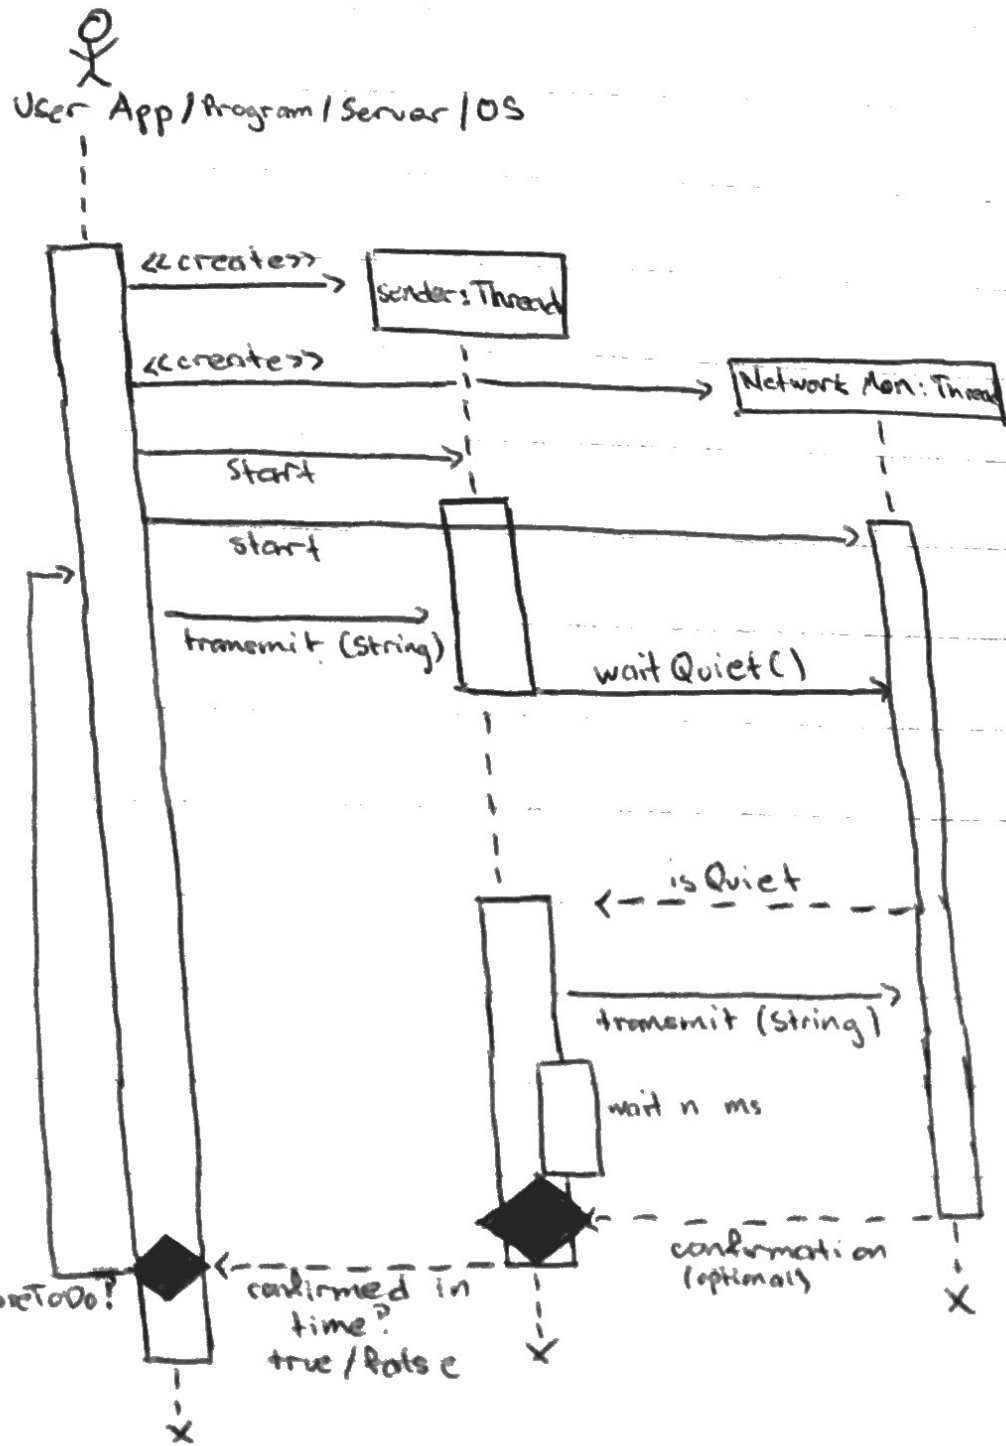 User App/Program/Server/OS
<<create>>
sender:Thread
<<create>>
Network Mon:Thread
start
start
transmit (String)
waitQuiet()
isQuiet
transmit (String)
wait n ms
confirmation
(optional)
confirmed in
time?
true/false
oreToDo?
X
X
X